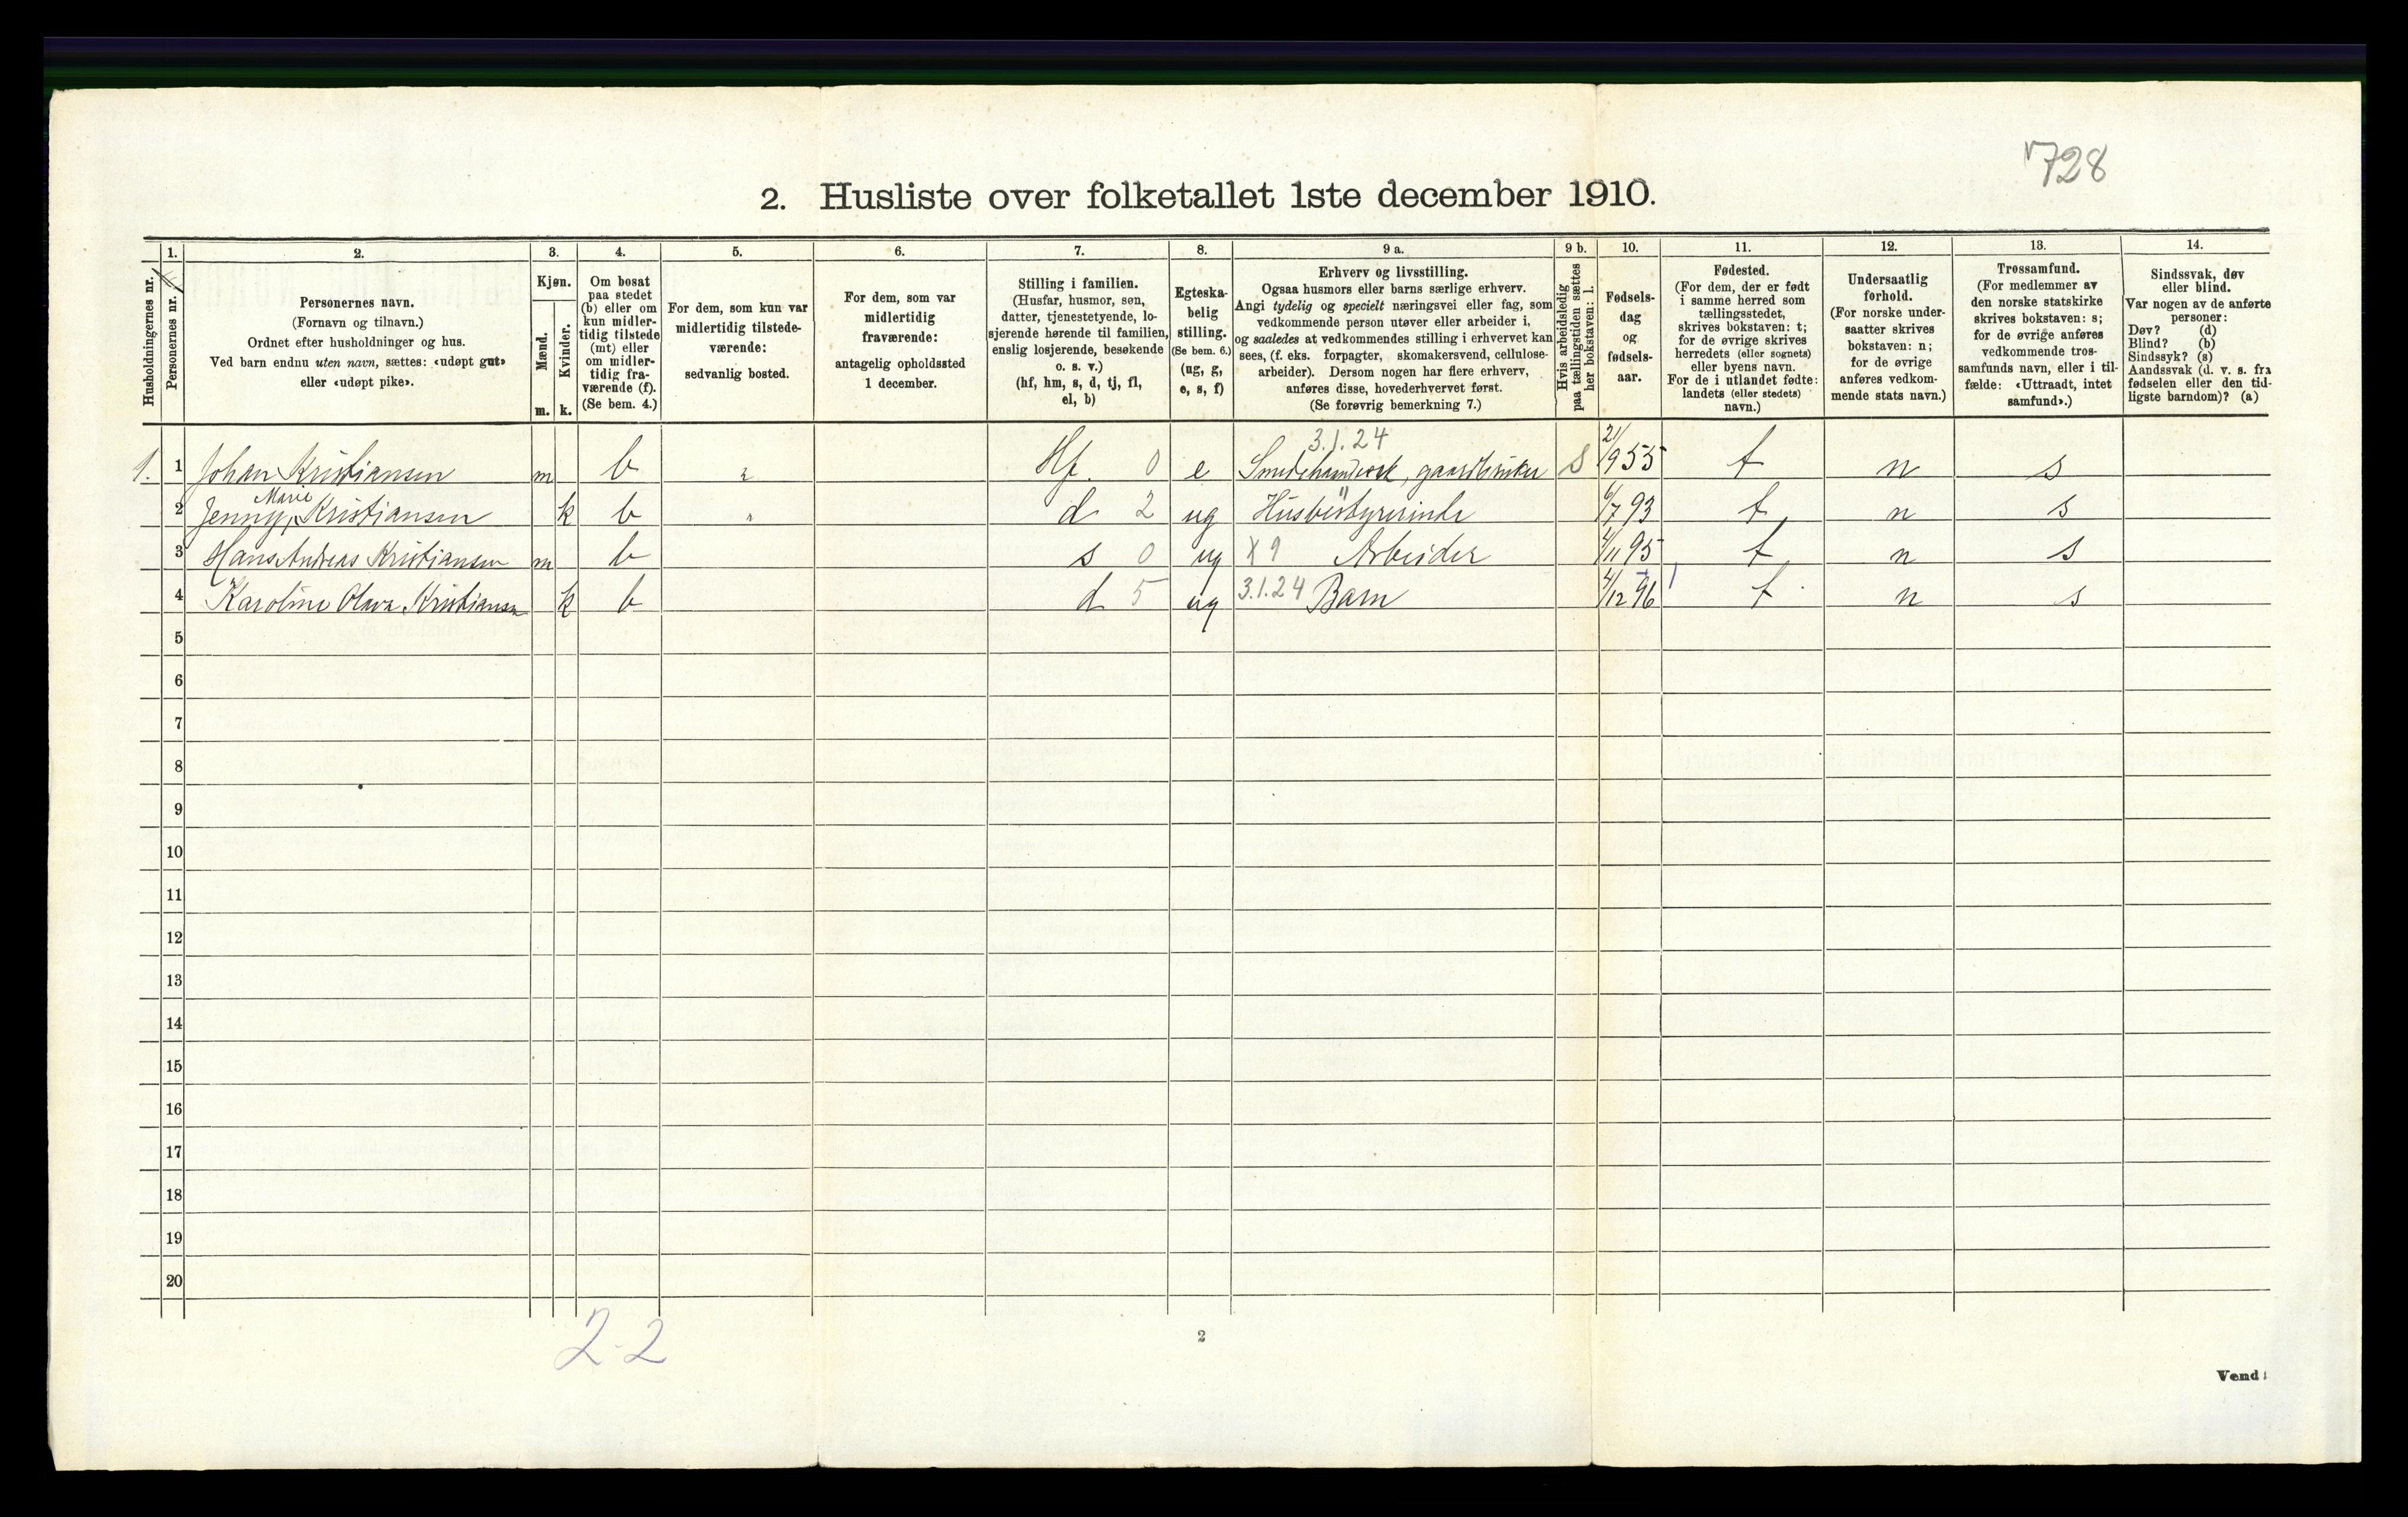 728
2. Husliste over folketallet 1ste december 1910.
Husholdningernes nr.
1.
Personernes nr.
2.
Personernes navn.
(Fornavn og tilnavn.)
Ordnet efter husholdninger og hus.
Ved barn endnu uten navn, sættes: «udøpt gut»
eller «udøpt pike».
3.
Kjøn.
Mænd.
m.
Kvinder.
k.
4.
Om bosat
paa stedet
(b) eller om
kun midler-
tidig tilstede
(mt) eller
om midler-
tidig fra-
værende (f).
(Se bem. 4.)
5.
For dem, som kun var
midlertidig tilstede-
værende:
sedvanlig bosted.
6.
For dem, som var
midlertidig
fraværende:
antagelig opholdssted
1 december.
7.
Stilling i familien.
(Husfar, husmor, søn,
datter, tjenestetyende, lo-
sjerende hørende til familien,
enslig losjerende, besøkende
o. s. v.)
(hf, hm, s, d, tj, fl,
el, b)
8.
Egteska-
belig
stilling.
(Se bem. 6.)
(ug, g,
e, s, f)
9 a.
Erhverv og livsstilling.
Ogsaa husmors eller barns særlige erhverv.
Angi tydelig og specielt næringsvei eller fag, som
vedkommende person utøver eller arbeider i,
og saaledes at vedkommendes stilling i erhvervet kan
sees, (f. eks. forpagter, skomakersvend, cellulose-
arbeider). Dersom nogen har flere erhverv,
anføres disse, hovederhvervet først.
(Se forøvrig bemerkning 7.)
9 b.
Hvis arbeidsledig
paa tællingstiden sættes
her bokstaven: l.
10.
Fødsels-
dag
og
fødsels-
aar.
11.
Fødested.
(For dem, der er født
i samme herred som
tællingsstedet,
skrives bokstaven: t;
for de øvrige skrives
herredets (eller sognets)
eller byens navn.
For de i utlandet fødte:
landets (eller stedets)
navn.)
12.
Undersaatlig
forhold.
(For norske under-
saatter skrives
bokstaven: n;
for de øvrige
anføres vedkom-
mende stats navn.)
13.
Trossamfund.
(For medlemmer av
den norske statskirke
skrives bokstaven: s;
for de øvrige anføres
vedkommende tros-
samfunds navn, eller i til-
fælde: «Uttraadt, intet
samfund».)
14.
Sindssvak, døv
eller blind.
Var nogen av de anførte
personer:
Døv? (d)
Blind? (b)
Sindssyk? (s)
Aandssvak (d. v. s. fra
fødselen eller den tid-
ligste barndom)? (a)
3.1.24
1. 1 Johan Kristiansen m b " Hf. 0 e Smedhåndverk, gaardbruker S 21/9 55 t n s
2 Jenny Marie Kristiansen k b " d 2 ug Husbestyrerinde 6/7 93 t n s
3 Hans Andreas Kristiansen m b s 0 ug X 9 Arbeider 4/11 95 t n s
4 Karoline Olava Kristiansen k b d 5 ug 3.1.24 Barn 4/12 96 t n s
5
6
7
8
9
10
11
12
13
14
15
16
17
18
19
20
2-2
2
Vend!